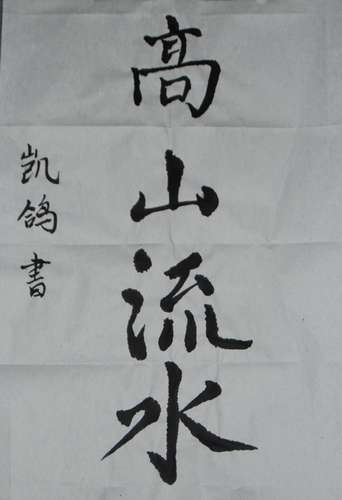 高山流水
凯鸽書